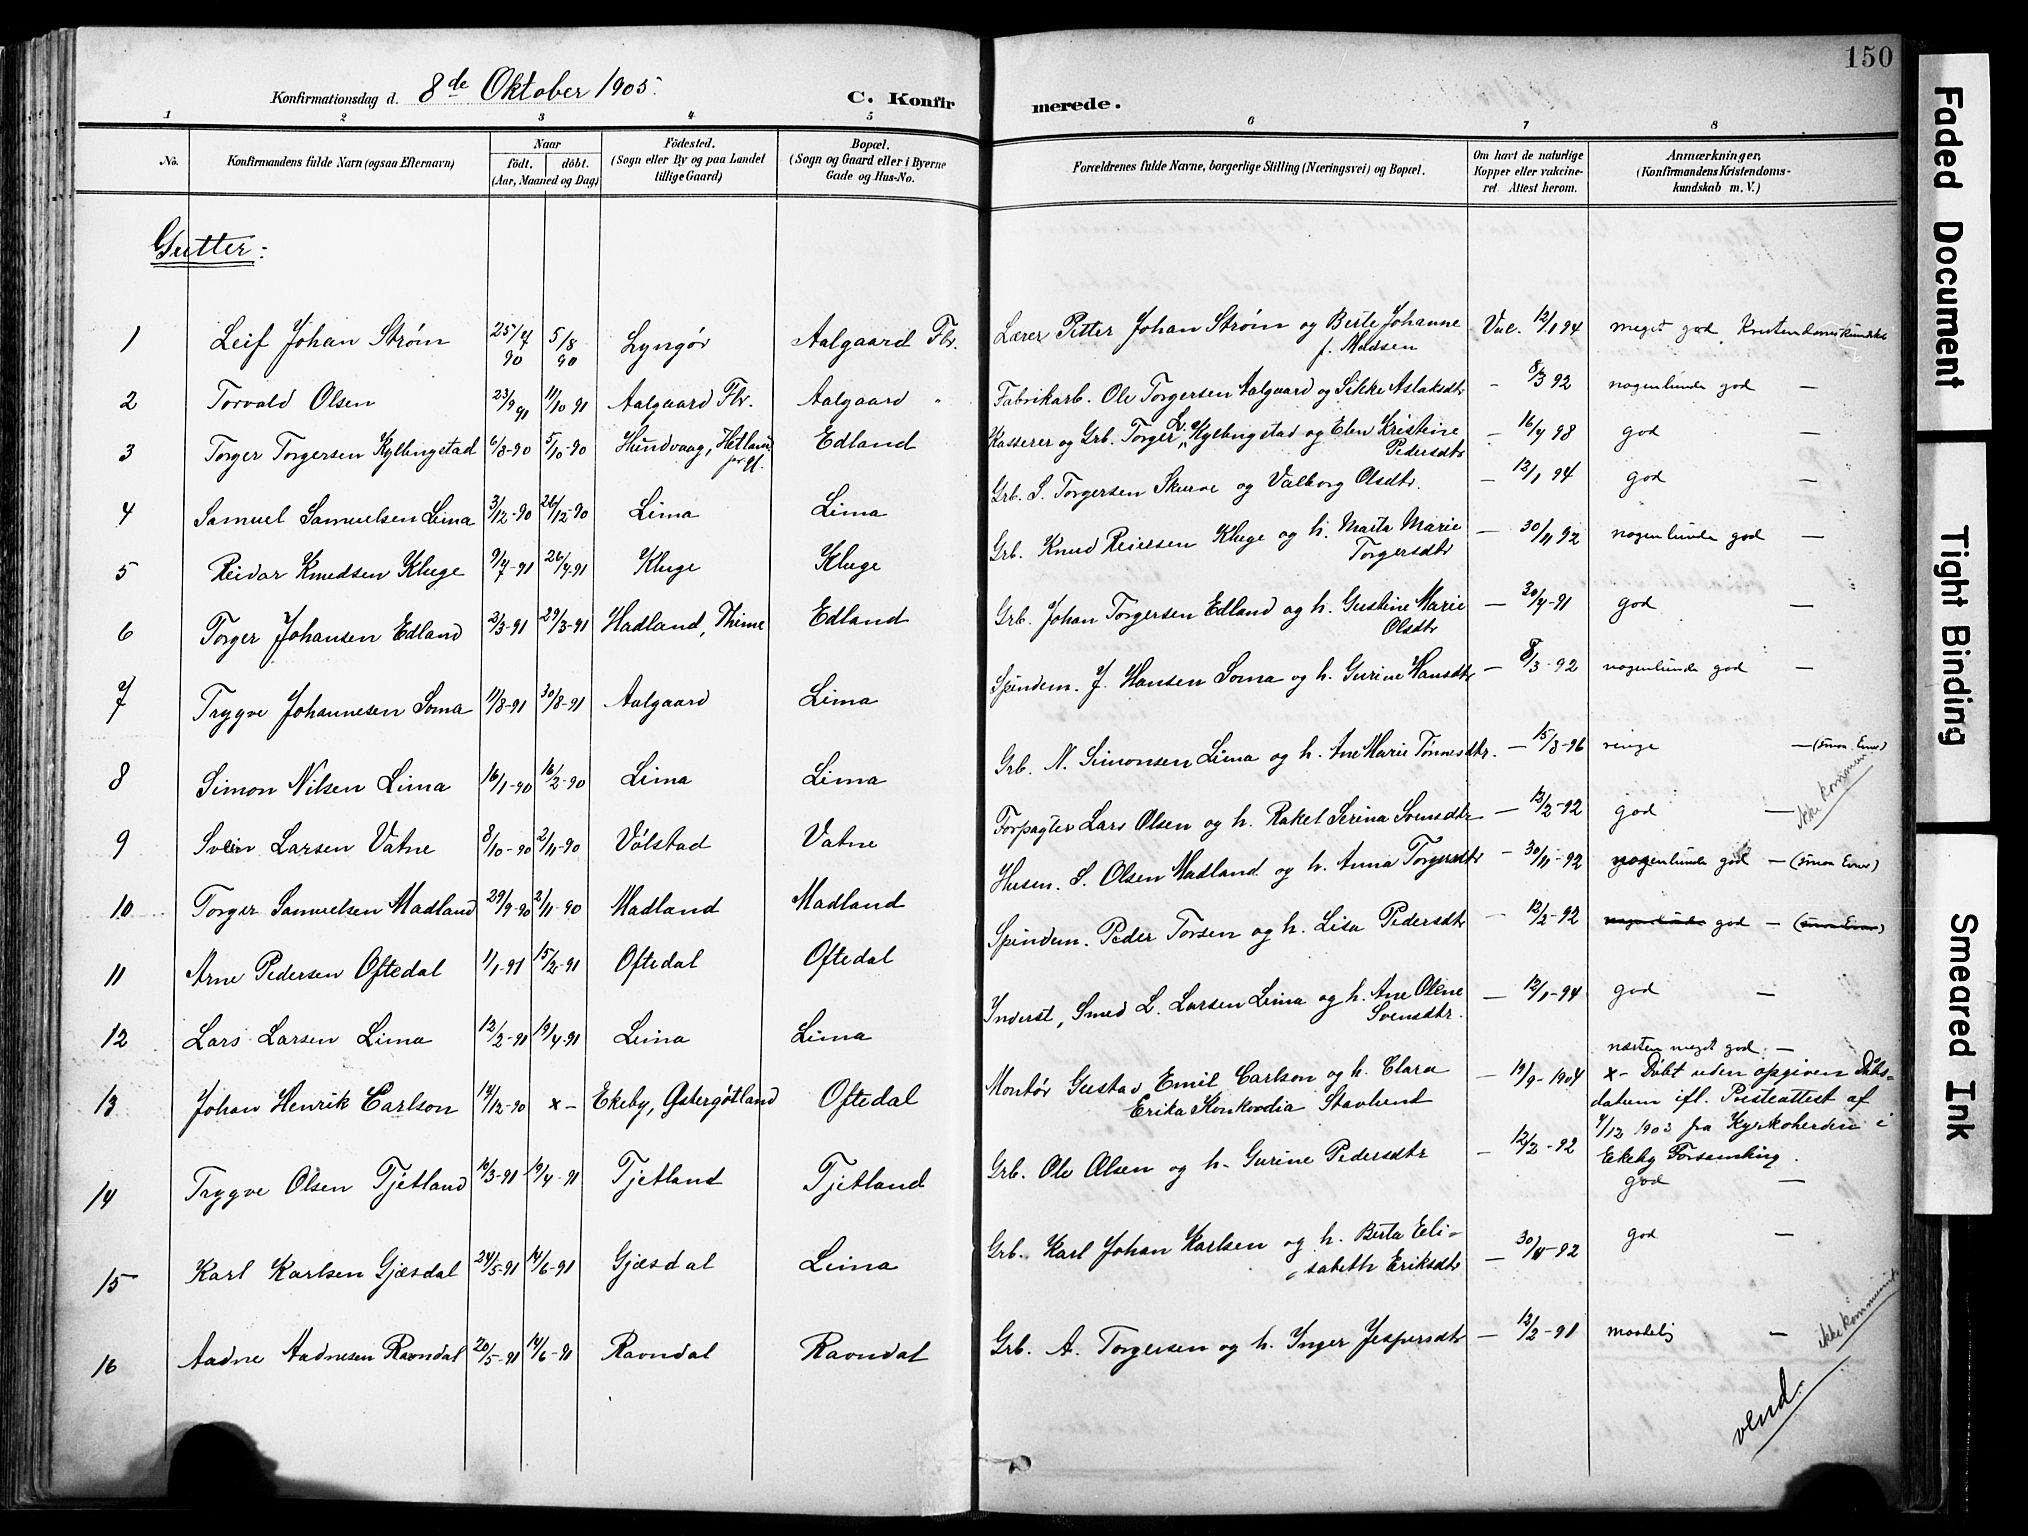 150
Konfirmationsdag d. 8de Oktober 1905.
C. Konfirmerede.
1 2 3 4 5 6 7 8
No. | Konfirmandens fulde Navn (ogsaa Efternavn) | Naar födt. döbt. (Aar, Maaned og Dag) | Födested. (Sogn eller By og paa Landet tillige Gaard) | Bopæl. (Sogn og Gaard eller i Byerne Gade og Hus-No. | Forældrenes fulde Navne, borgerlige Stilling (Næringsvei) og Bopæl. | Om havt de naturlige Kopper eller vakcineret. Attest herom. | Anmærkninger, (Konfirmandens Kristendomskundskab m. V.)
Gutter:
1 Leif Johan Strøm 25/4 90 5/8 90 Lyngør Aalgaard Fbr. Lærer Petter Johan Strøm og Berte Johanne f. Madsen Vac. 12/1 94 meget god Kristendomskundskb
2 Torvald Olsen 23/9 91 11/10 91 Aalgaard Fbr. Aalgaard " Fabrikarb. Ole Torgersen Aalgaard og Sikke Aslaksdtr – 8/3 92 nogenlunde god –
3 Torger Torgersen Kyllingstad 6/8-90 5/10-90 Hundvaag, Hetland prgj. Edland Kasserer og Grb. Torger L. Kyllingstad og Elen Kristine Pedersdtr – 16/7 98 god –
4 Samuel Samuelsen Lima 3/12-90 26/12-90 Lima Lima Grb. S. Torgersen Skurve og Valborg Olsdtr. – 12/1 94 god –
5 Reidar Knudsen Kluge 9/4-91 26/4-91 Kluge Kluge Grb. Knud Reiersen Kluge og h. Marta Marie Torgersdtr – 30/11 92 nogenlunde god –
6 Torger Johansen Edland 2/3-91 29/3-91 Hadland, Thime Edland Grb. Johan Torgersen Edland og h. Gustine Marie Olsdtr – 30/4-91 god –
7 Trygve Johannesen Soma 11/8-91 30/8-91 Aalgaard Lima Spindem. J. Hansen Soma og h. Gurine Hansdtr – 8/3-92 nogenlunde god –
8 Simon Nilsen Lima 16/1-90 16/2-90 Lima Lima Grb. N. Simonsen Lima og h. Ane Marie Tønnesdtr. – 15/3-96 ringe – (smaa Evner) ikke kommun.
9 Svein Larsen Vatne 8/10-90 2/11-90 Vølstad Vatne Forpagter Lars Olsen og h. Rakel Serina Svensdtr – 12/2-92 god –
10 Torger Samuelsen Madland 29/9-90 2/11-90 Madland Madland Husm. S. Olsen Madland og h. Anna Torgersdtr – 30/11-92 nogenlunde god – (smaa Evner)
11 Arne Pedersen Oftedal 11/1-91 15/2-91 Oftedal Oftedal Spindem. Peder Torsen og h. Lisa Pedersdtr – 12/2-92 nogenlunde god – (smaa Evner)
12 Lars Larsen Lima 12/2-91 19/4-91 Lima Lima Inderst, Smed L. Larsen Lima og h. Ane Olene Svensdtr. – 12/1-94 god –
13 Johan Henrik Carlson 14/12-90 x- Ekeby, Østergøtland Oftedal Montør Gustav Emil Carlson og h. Clara Erika Konkordia Stavlund – 19/9-1904 næsten meget god. –
x- Døbt uden opgiven Daabsdatum ifl. Presteattest af 4/12 1903 fra Kyrkoherden i Ekeby Forsamling.
14 Trygve Olsen Tjetland 16/3-91 19/4-91 Tjetland Tjetland Grb. Ole Olsen og h. Gurine Pedersdtr – 12/2-92 god –
15 Karl Karlsen Gjæsdal 24/5-91 14/6-91 Gjæsdal Lima Grb. Karl Johan Karlsen og h. Berta Elisabeth Eriksdtr – 30/11-92 god –
16 Aadne Aadnesen Ravndal 20/5-91 14/6-91 Ravndal Ravndal Grb. A. Torgersen og h. Inger Jespersdtr – 12/2-91 maadelig – ikke kommun.
vend.
Faded Document
Tight Binding
Smeared Ink